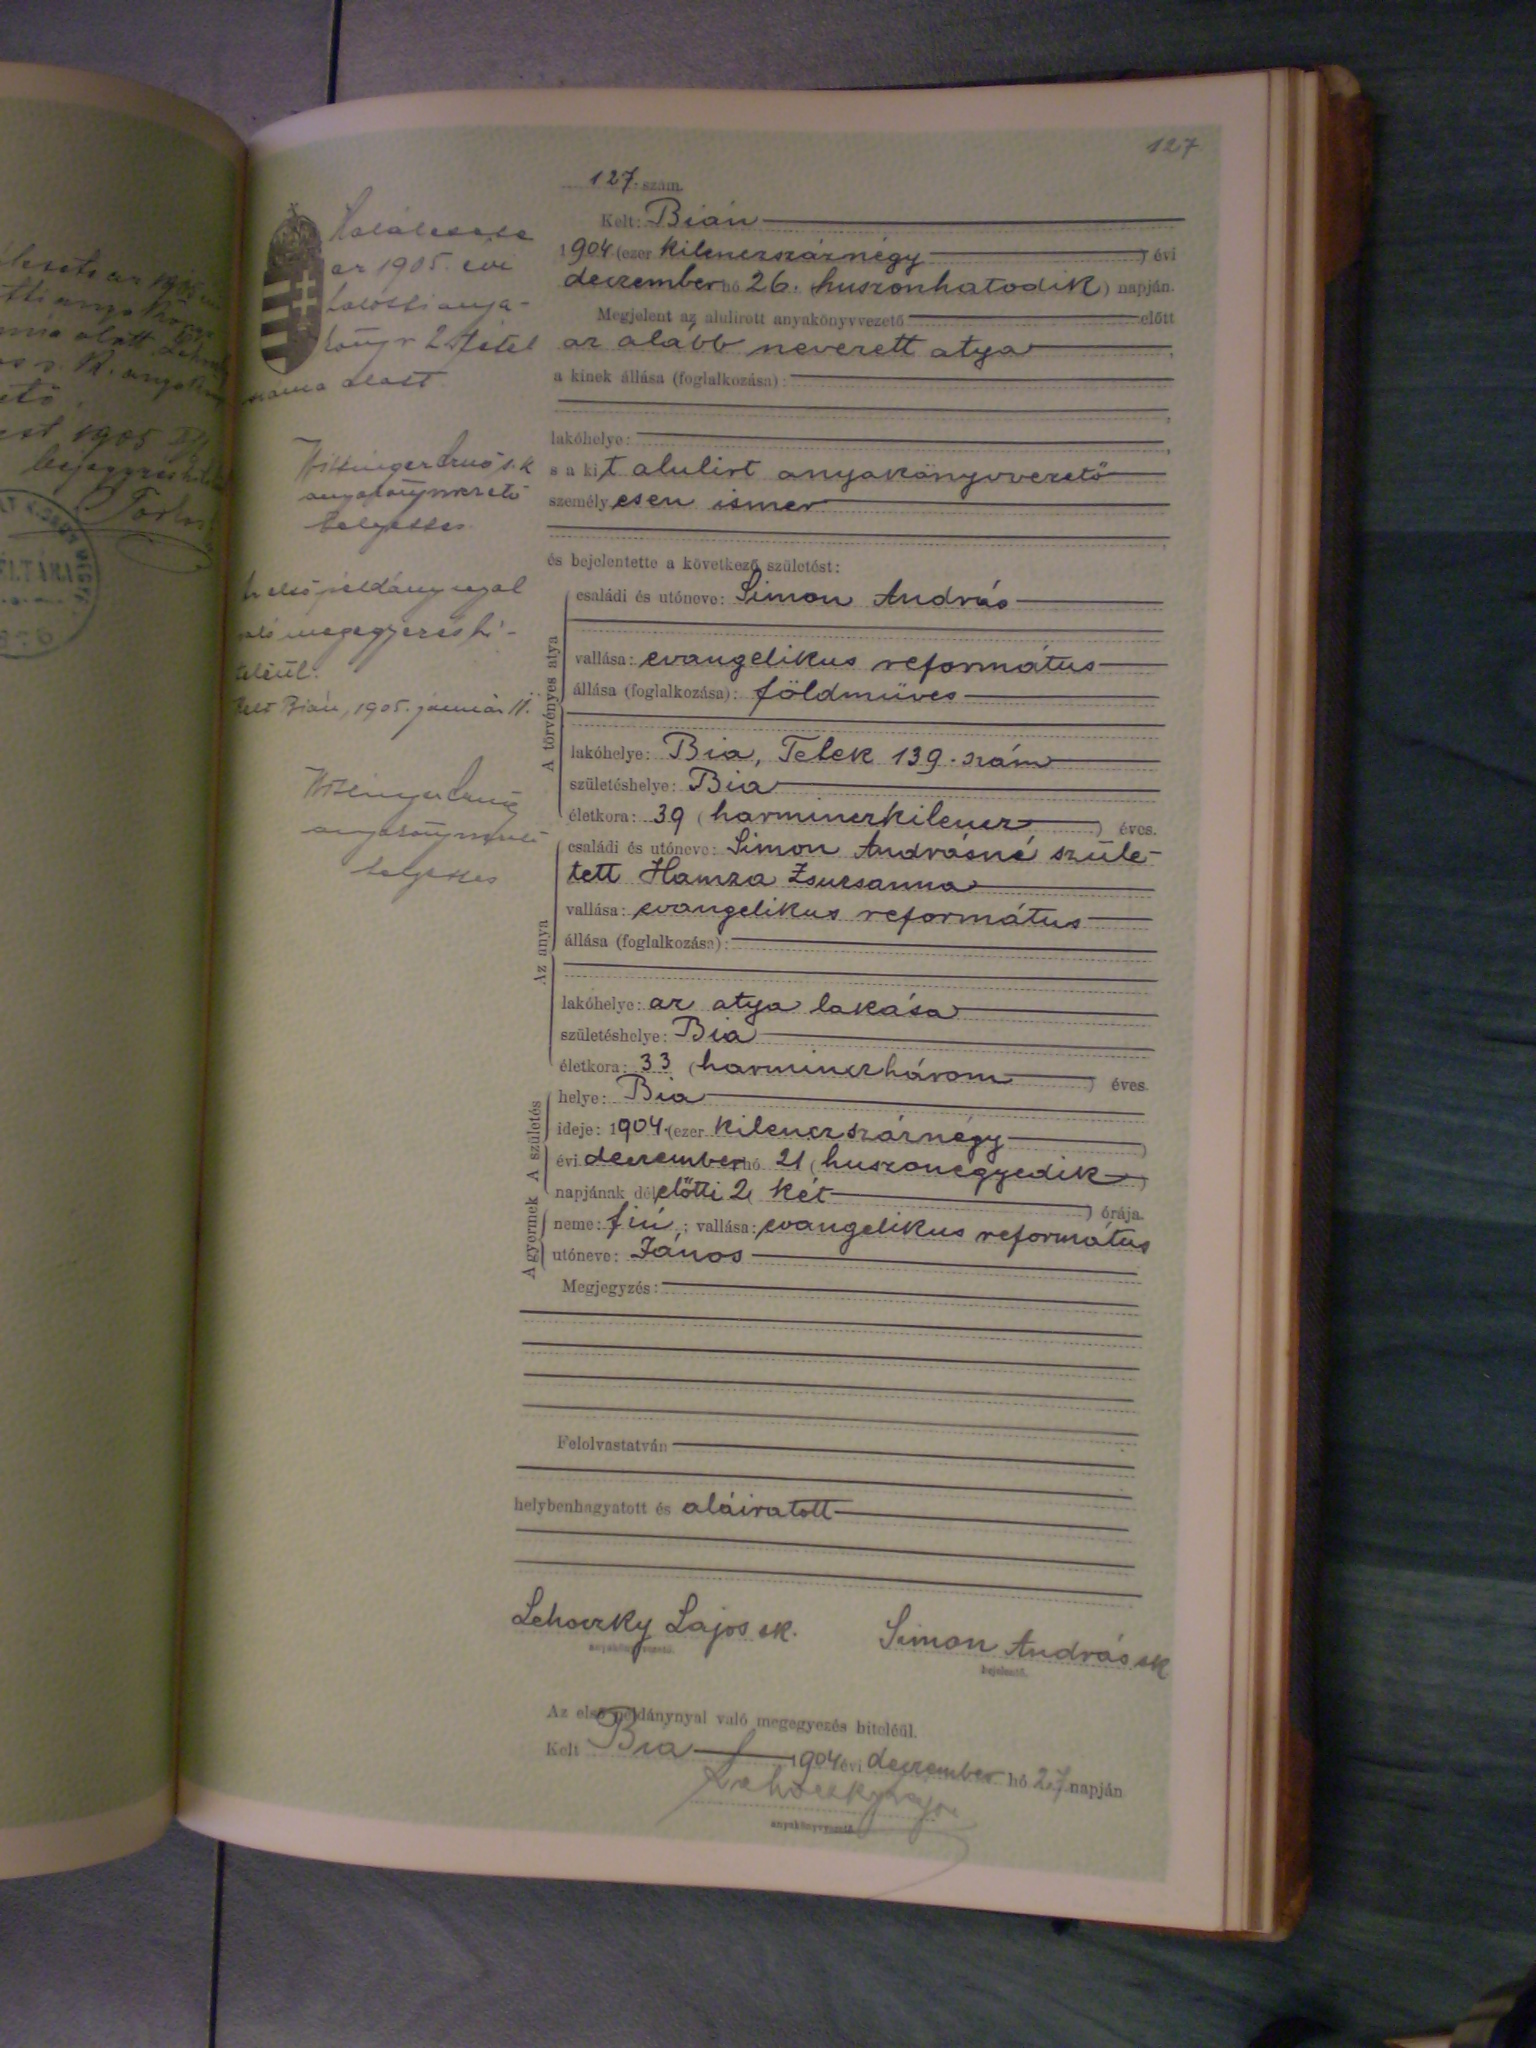 127
127. szám.
Kelt: Bián
1904 (ezer kilenczszáznégy) évi
deczember hó 26. (huszonhatodik) napján.
Megjelent az alulirott anyakönyvvezető előtt
az alább nevezett atya,
a kinek állása (foglalkozása):
lakóhelye:
s a kit alulirt anyakönyvvezető
személyesen ismer
és bejelentette a következő születést:
A törvényes atya
családi és utóneve: Simon András
vallása: evangelikus református
állása (foglalkozása): földmüves
lakóhelye: Bia, Telek 139. szám
születéshelye: Bia
életkora: 39 (harminczkilencz) éves.
Az anya
családi és utóneve: Simon Andrásné szüle-
tett Hamza Zsuzsanna
vallása: evangelikus református
állása (foglalkozása):
lakóhelye: az atya lakása
születéshelye: Bia
életkora: 33 (harminczhárom) éves.
A születés
helye: Bia
ideje: 1904. (ezer kilenczszáznégy)
évi deczember hó 21 (huszonegyedik)
napjának délelőtti 2 két) órája.
A gyermek
neme: fiú; vallása: evangelikus református
utóneve: János
Megjegyzés:
Felolvastatván
helybenhagyatott és aláiratott
Lehoczky Lajos sk. Simon András sk
anyakönyvvezető. bejelentő.
Az első példánynyal való megegyezés hiteléül.
Kelt Bia 1904 évi deczember hó 27 napján
Lehoczky Lajos
anyakönyvvezető.
Halálesete
az 1905. évi
halotti anya-
könyv 2 tétel
száma alatt
Ernő s.k
anyakönyvvezető
helyettes
Az első példánynyal
való megegyezés hi-
teléül.
Kelt Bián, 1905. január 11.
Ernő
anyakönyvvezető
helyettes
1905